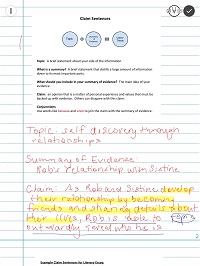 Claim Sentences
Topic
+
=
Topic: A brief statement about your side of the information
What is a summary? A brief statement that distills a large amount of information down to its most important parts.
What should you include in your summary of evidence? The main idea of your evidence.
Claim: an opinion that is a matter of personal experience and values that must be backed up with evidence. Others can disagree with this claim.
Conjunctions:
Use words like because and since to join the claim with the summary of evidence.
Topic: self discovery through
relationships
Summary of Evidence:
Rob's relationship with Sistine
Claim: As Rob and Sistine develop
their relationship by becoming
friends and sharing details about
their lives, Rob is able to
outwardly reveal who he is
Example Claim Sentences for Literary Essay